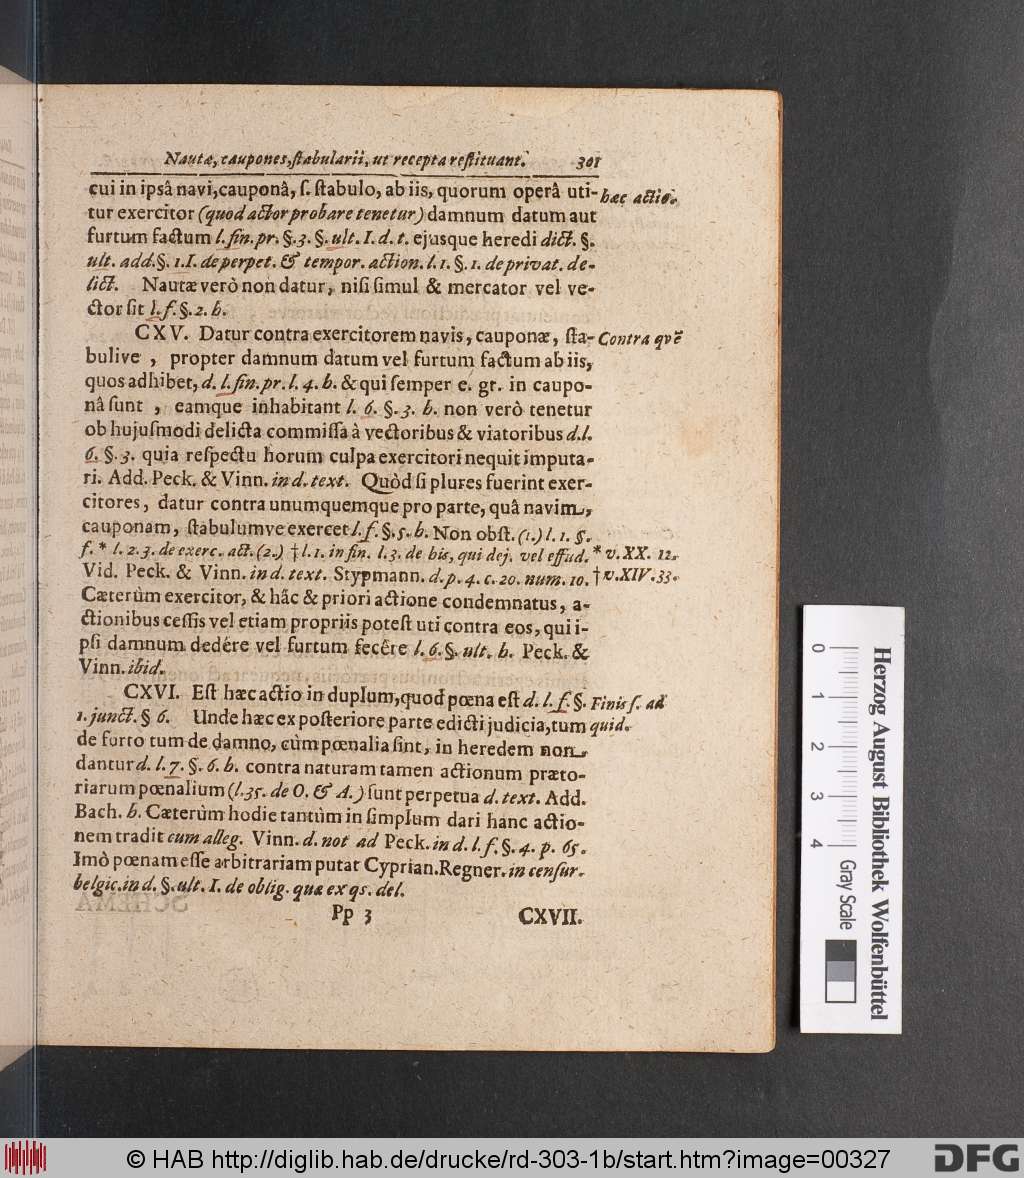 Nautæ, caupones, ſtabularii, ut recepta reſtituant. 301
cui in ipsâ navi, cauponâ, ſ. ſtabulo, ab iis, quorum operâ uti- hæc actio.
tur exercitor (quod actor probare tenetur) damnum datum aut
furtum factum l. fin. pr. §. 3. §. ult. I. d. t. ejusque heredi dict. §.
ult. add. §. 1. I. de perpet. & tempor. action. l. 1. §. 1. de privat. de-
lict. Nautæ verò non datur, niſi ſimul & mercator vel ve-
ctor ſit l. f. §. 2. h.
CXV. Datur contra exercitorem navis, cauponæ, ſta- Contra qvẽ
bulive, propter damnum datum vel furtum factum ab iis,
quos adhibet, d. l. fin. pr. l. 4. h. & qui ſemper e. gr. in caupo-
nâ ſunt, eamque inhabitant l. 6. §. 3. h. non verò tenetur
ob hujuſmodi delicta commiſſa à vectoribus & viatoribus d. l.
6. §. 3. quia reſpectu horum culpa exercitori nequit imputa-
ri. Add. Peck. & Vinn. in d. text. Quòd ſi plures fuerint exer-
citores, datur contra unumquemque pro parte, quâ navim,
cauponam, ſtabulumve exercet l. f. §. 5. h. Non obſt. (1.) l. 1. §.
f. * l. 2. 3. de exerc. act. (2.) † l. 1. in fin. l. 3. de his, qui dej. vel effud. * v. XX. 12.
Vid. Peck. & Vinn. in d. text. Stypmann. d. p. 4. c. 20. num. 10. † v. XIV. 33.
Cæterùm exercitor, & hâc & priori actione condemnatus, a-
ctionibus ceſſis vel etiam propriis poteſt uti contra eos, qui i-
pſi damnum dedére vel furtum fecêre l. 6. §. ult. h. Peck. &
Vinn. ibid.
CXVI. Eſt hæc actio in duplum, quod pœna eſt d. l. f. §. Finis ſ. ad
1. junct. § 6. Unde hæc ex poſteriore parte edicti judicia, tum quid.
de furto tum de damno, cùm pœnalia ſint, in heredem non
dantur d. l. 7. §. 6. h. contra naturam tamen actionum præto-
riarum pœnalium (l. 35. de O. & A.) ſunt perpetua d. text. Add.
Bach. h. Cæterùm hodie tantùm in ſimplum dari hanc actio-
nem tradit cum alleg. Vinn. d. not ad Peck. in d. l. f. §. 4. p. 65.
Imò pœnam eſſe arbitrariam putat Cyprian. Regner. in cenſur.
belgic. in d. §. ult. I. de oblig. quæ ex qs. del.
Pp 3 CXVII.
0 1 2 3 4
Gray Scale
Herzog August Bibliothek Wolfenbüttel
© HAB http://diglib.hab.de/drucke/rd-303-1b/start.htm?image=00327
DFG